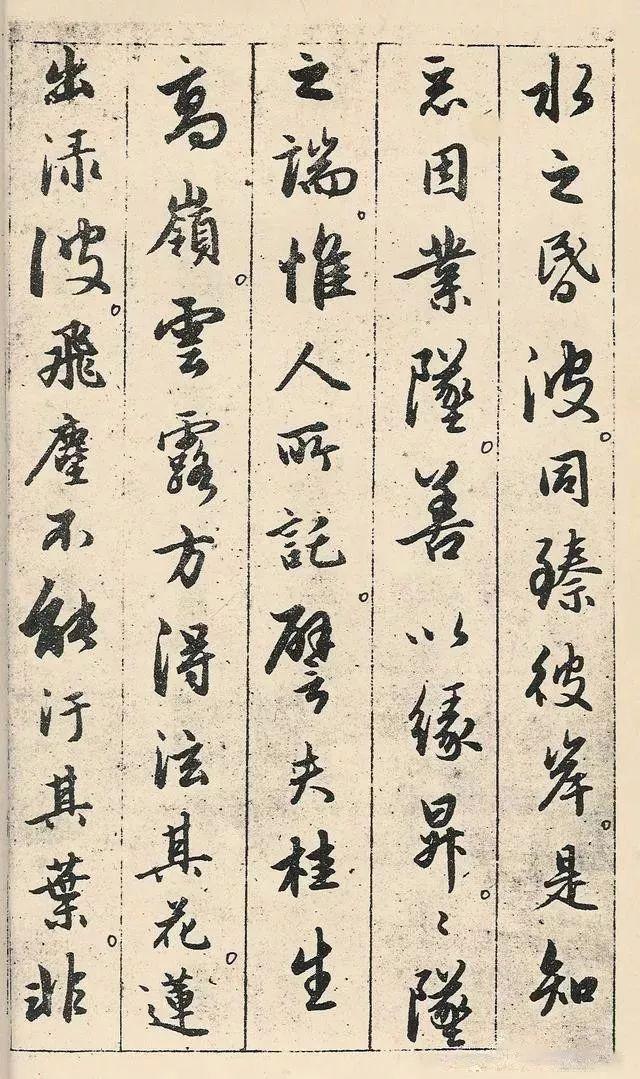 水之昏波。同臻彼岸。是知
惡因業墜。善以緣昇。〻墜
之端。惟人所託。譬夫桂生
高嶺。雲露方得泫其花。蓮
出淥波。飛塵不能汙其葉。非